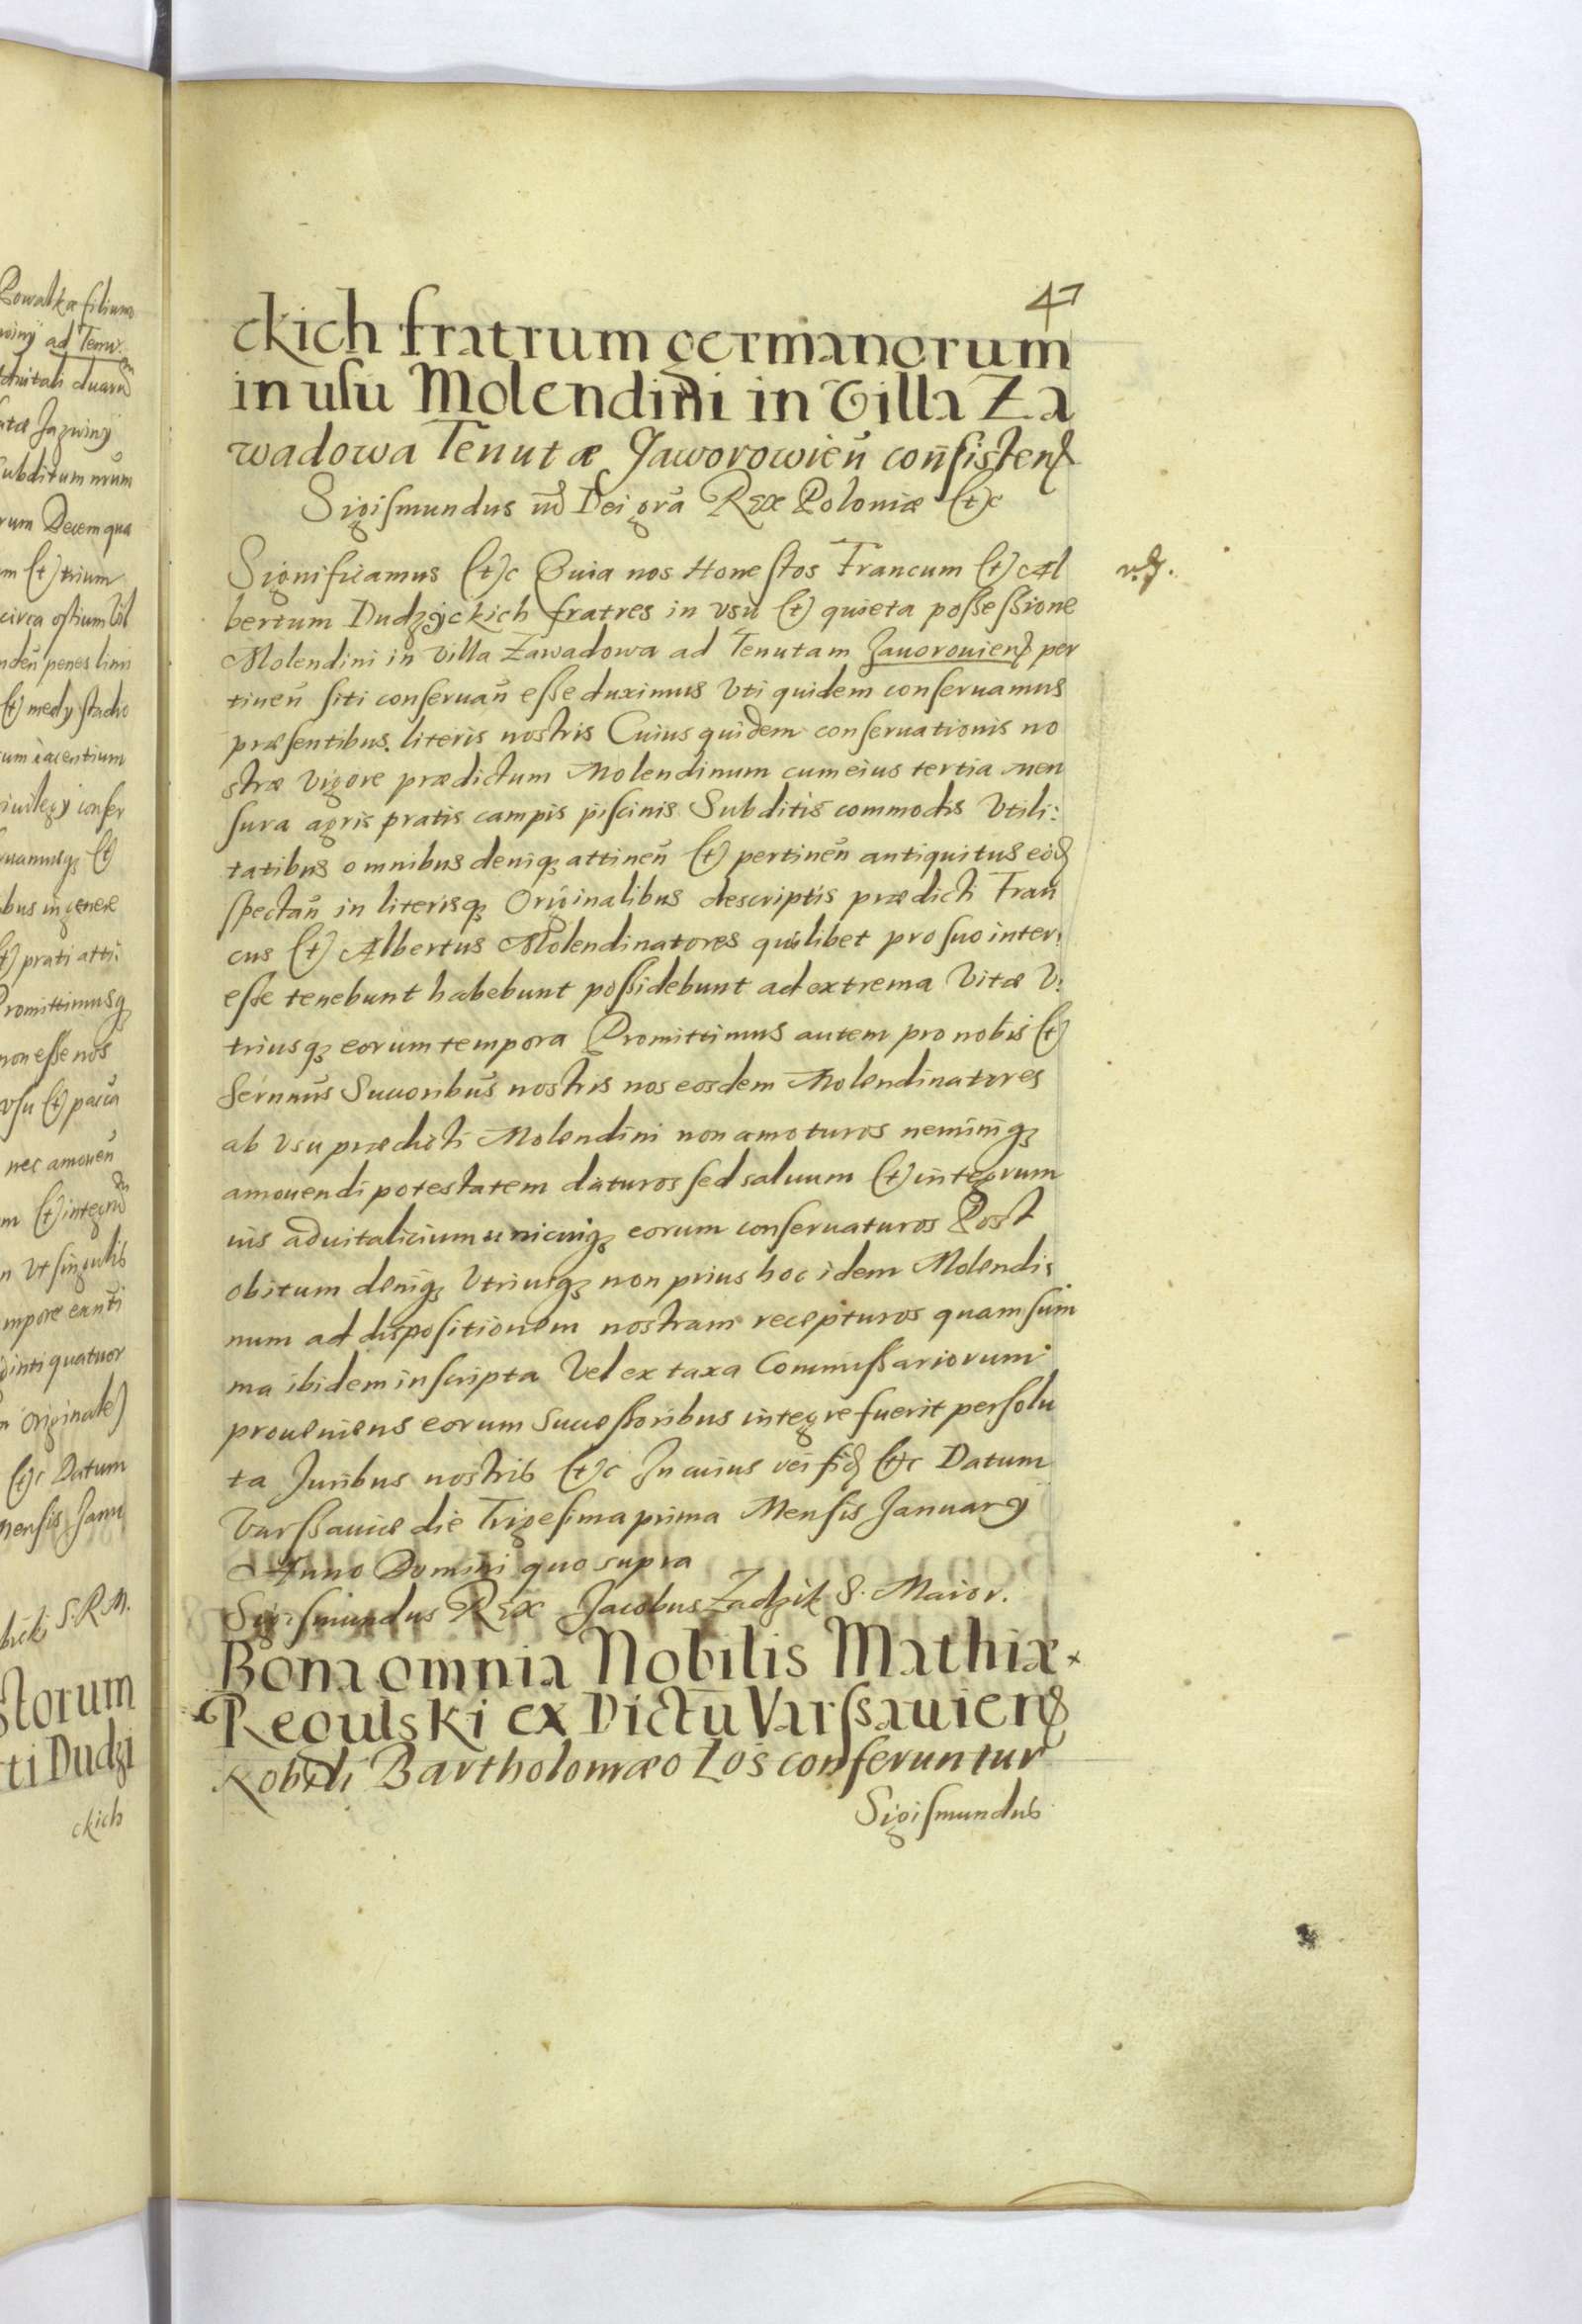 47
ckich fratrum germanorum
in usu Molendini in Villa Za
wadowa Tenutæ Jaworowień cońsisten
Sigismundus Dei grã Rex Poloniæ (et)c
Significamus (et)c Quia nos Honestos Francum (et) Al
bertum Dudzyckich fratres in usu (et) quieta possessione
Molendini in Villa Zawadowa ad Tenutam Javorovien per
tineñ siti conservañ esse duximus Vti quidem conservamus
præsentibus literis nostris Cuius quidem conservationis no
stræ vigore prædictum Molendinum cum eius tertia men
sura agris pratis campis piscinis Subditis commodis Vtili:
tatibus omnibus deniq attineñ (et) pertineñ antiquitus eõd
spectañ in literisq Originalibus descriptis prædicti Fran
cus (et) Albertus Molendinatores quilibet pro suo inter:
esse tenebunt habebunt possidebunt ad extrema Vitæ V:
triusq eorum tempora Promittimus autem pro nobis (et)
Serñnis Succoribus nostris nos eosdem Molendinatores
ab vsu prædicti Molendini non amoturos neminiq
amovendi potestatem daturos sed salvum (et) integrum
ius advitalicium unicuiq eorum conservaturos Post
obitum deniq Vtriusq non prius hoc idem Molendi:
num ad dispositionem nostram recepturos quam sum
ma ibidem inscripta Vel ex taxa Commissariorum
proveniens eorum Successoribus integre fuerit persolu
ta Juribus nostris (et)c In cuius rei fid (et)c Datum
Varssaviæ die Trigesima prima Mensis January
Anno Domini quo supra
Sigismundus Rex Jacobus Zadzik S. Maior.
Bona omnia Nobilis Mathiæ
Regulski ex Dictu Varssavien
Nobili Bartholomæo Łos conferuntur
Sigismundus
Powalkæ filium
ad Tenu.
Jazwiny
Subditum nrum
rum Decem qua
m (et) trium
circa ostium Vil
penes limi
(et) medy stadio
um iacentium
ivilegy conser
vamusq (et)
bus in genere
(et) prati atti:
Promittimusq
non esse nos
vsu (et) pacca
nec amoveñ
m (et) integrũ
n Vt singulis
mpore
ginti quatuor
n Originale)
(et)c Datum
mensis Janu
bicki S.R.M.
storum
ti Dudzi
ckich